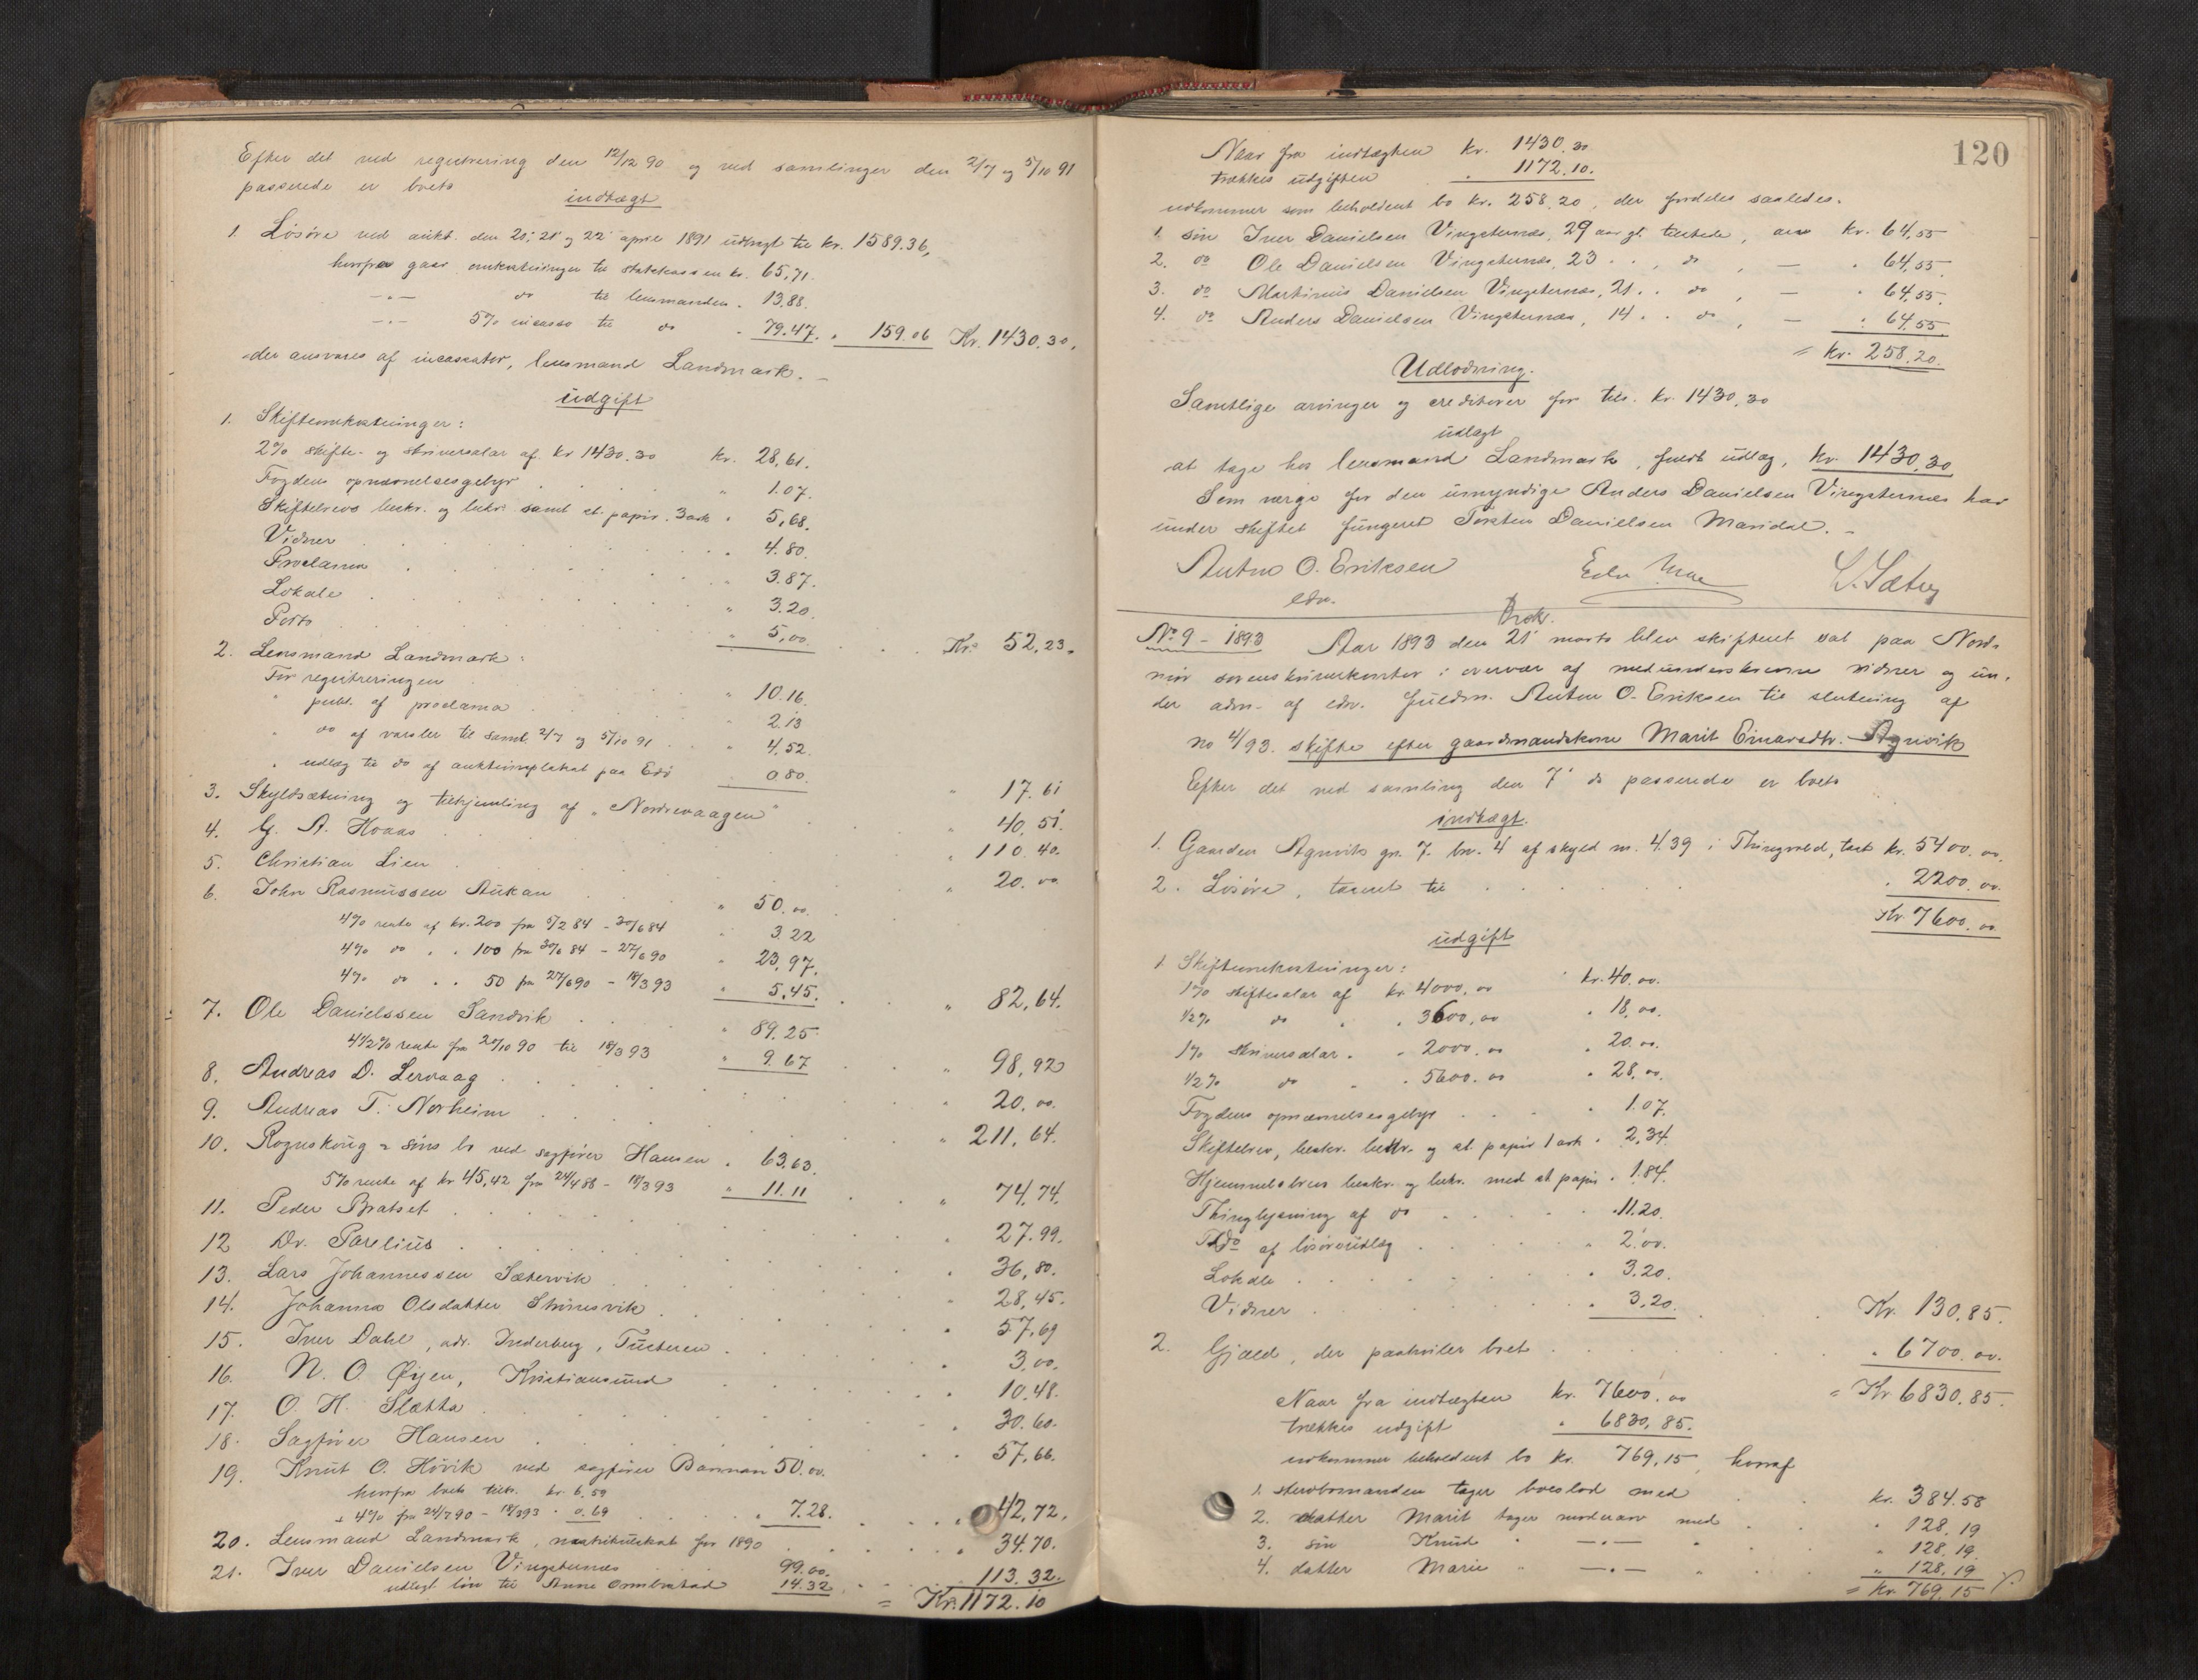 Efter det ved registrering den 12/12 90 og ved samlinger den 2/7 og 5/10 91
passerede er boets
indtægt
1. Løsøre ved aukt. den 20', 21' og 22' april 1891 udbragt til kr. 1589.36,
herfra gaar omkostninger til statskassen kr. 65,71.
-"- do til lensmanden " 13.88.
-"- 5% incasso til do " 79.47. " 159.06 Kr. 1430.30,
der ansvares af incassator, lensmand Landmark. -
udgift
1. Skifteomkostninger:
2% skifte- og skriversalær af kr 1430.30 kr. 28,61.
Fogdens opnævnelsesgebyr " 1.07.
Skiftebrevs beskr. og bekr. samt st. papir 3 ark " 5,68.
Vidner " 4.80.
Proclama " 3.87.
Lokale " 3.20.
Porto " 5,00. Kr. 52,23.
2. Lensmand Landmark:
For registreringen " 10.16.
" publ. af proclama " 2.13
" do af varsler til saml. 2/7 og 5/10 91 " 4,52.
" udlæg til do af auktionsplakat paa Edø 0.80. " 17.61
3. Skyldsætning og tilhjemling af "Nordrevaagen" " 40,51.
4. G. A. Hoaas " 110.40.
5. Christian Lien " 20.00
6. John Rasmussen Aukan " 50.00
4% rente af kr. 200 fra 5/2 84 - 30/6 84 " 3.22
4% do " " 100 fra 30/6 84 - 27/6 90 " 23,97.
4% do " " 50 fra 27/6 90 - 18/3 93 " 5,45. " 82,64.
7. Ole Danielssen Sandvik " 89.25
4 1/2% rente fra 20/10 90 til 18/3 93 " 9.67 " 98,92
8. Andreas D. Lervaag " 20.00.
9. Andreas T. Norheim " 211,64.
10. Rognskoug & søns bo ved sagfører Hansen " 63,63.
5% rente af kr 45,42 fra 24/4 88 - 18/3 93 " 11.11 " 74,74.
11. Peder Bratset " 27.99.
12 Dr. Parelius " 36,80.
13. Lars Johannessen Sætervik " 28,45.
14. Johanna Olsdatter Skinesvik " 57,69
15. Iver Dahl, adr. Inderberg, Tusteren " 3,00.
16. N. O. Øyen, Kristiansund " 10.48.
17. O. H. Slatta " 30.60.
18. Sagfører Hansen " 57,66.
19. Knut O. Høvik ved sagfører Barman 50.00.
herfra boets tilk. kr. 6.59
+ 4% fra 24/7 90 - 18/3 93 " 0.69 " 7.28. " 42,72.
20. Lensmand Landmark, matrikulskat for 1890 " 34.70.
21. Iver Danielsen Vingsternæs 99.00.
udlagt løn til Anne Ormbostad 14.32 113.32.
= Kr. 1172.10
120
Naar fra indtægten kr. 1430.30
trækkes udgiften " 1172.10.
udkommer som beholdent bo kr. 258,20, der fordeles saaledes:
1. søn Iver Danielsen Vingsternæs, 29 aar gl. tilstede, arv kr. 64,55
2. do Ole Danielsen Vingsternæs, 23 " " , do , — " 64,55.
3. do Martinus Danielsen Vingsternæs, 21 " " do , — " 64,55.
4. do Anders Danielsen Vingsternæs, 14 " " do , — " 64.55
= kr. 258.20.
Udlodning.
Samtlige arvinger og creditorer for tils. kr. 1430,30
udlagt
at tage hos lensmand Landmark, fuldt udlæg, kr. 1430,30
Som værge for den umyndige Anders Danielsen Vingsternæs har
under skiftet fungeret Torsten Danielsen Mandal. -
Anton O. Eriksen
edv.
No 9 - 1893 Aar 1893 den 21' marts blev skifteret sat paa Nord-
mør sorenskriverkontor i overvær af medunderskrevne vidner og un-
der adm. af edv. fuldm. Anton O. Eriksen til slutning af
no 4/93. skifte efter gaardmandskone Marit Einarsdtr. Agnvik
Efter det ved samling den 7' ds passerede er boets
indtægt.
1. Gaarden Agnvik gn. 7. bn. 4 af skyld m. 4.39 i Thingvold, taxt kr. 5400.00
2. Løsøre, taxeret til " 2200.00.
Kr. 7600.00
udgift
1. Skifteomkostninger:
1% skiftesalær af kr. 4000,00 kr. 40.00.
1/2% do " " 3600,00 " 18,00.
1% skriversalær " " 2000.00 " 20.00.
1/2% do " " 5600.00 " 28,00.
Fogdens opnævnelsesgebyr " 1.07.
Skiftebrev, beskr. bekr. og st. papir 1 ark " 2,34
Hjemmelsbrev beskr. og bekr. med st papir " 1.84.
Thinglysning af do " 11.20.
do af løsøreudlæg " 2.00.
Lokale " 3.20.
Vidner " 3,20. Kr. 130,85.
2. Gjæld, der paahviler boet " 6700.00.
= Kr 6830.85.
Naar fra indtægten kr. 7600.00
trækkes udgift " 6830,85.
udkommer beholdent bo kr. 769,15, hvoraf
1. sterbomanden tager boeslod med kr. 384.58
2. datter Marit tager mødrearv med " 128,19
3. søn Knud " —"— " " 128.19.
4. datter Marie " —"— " " 128.19
= kr. 769.15